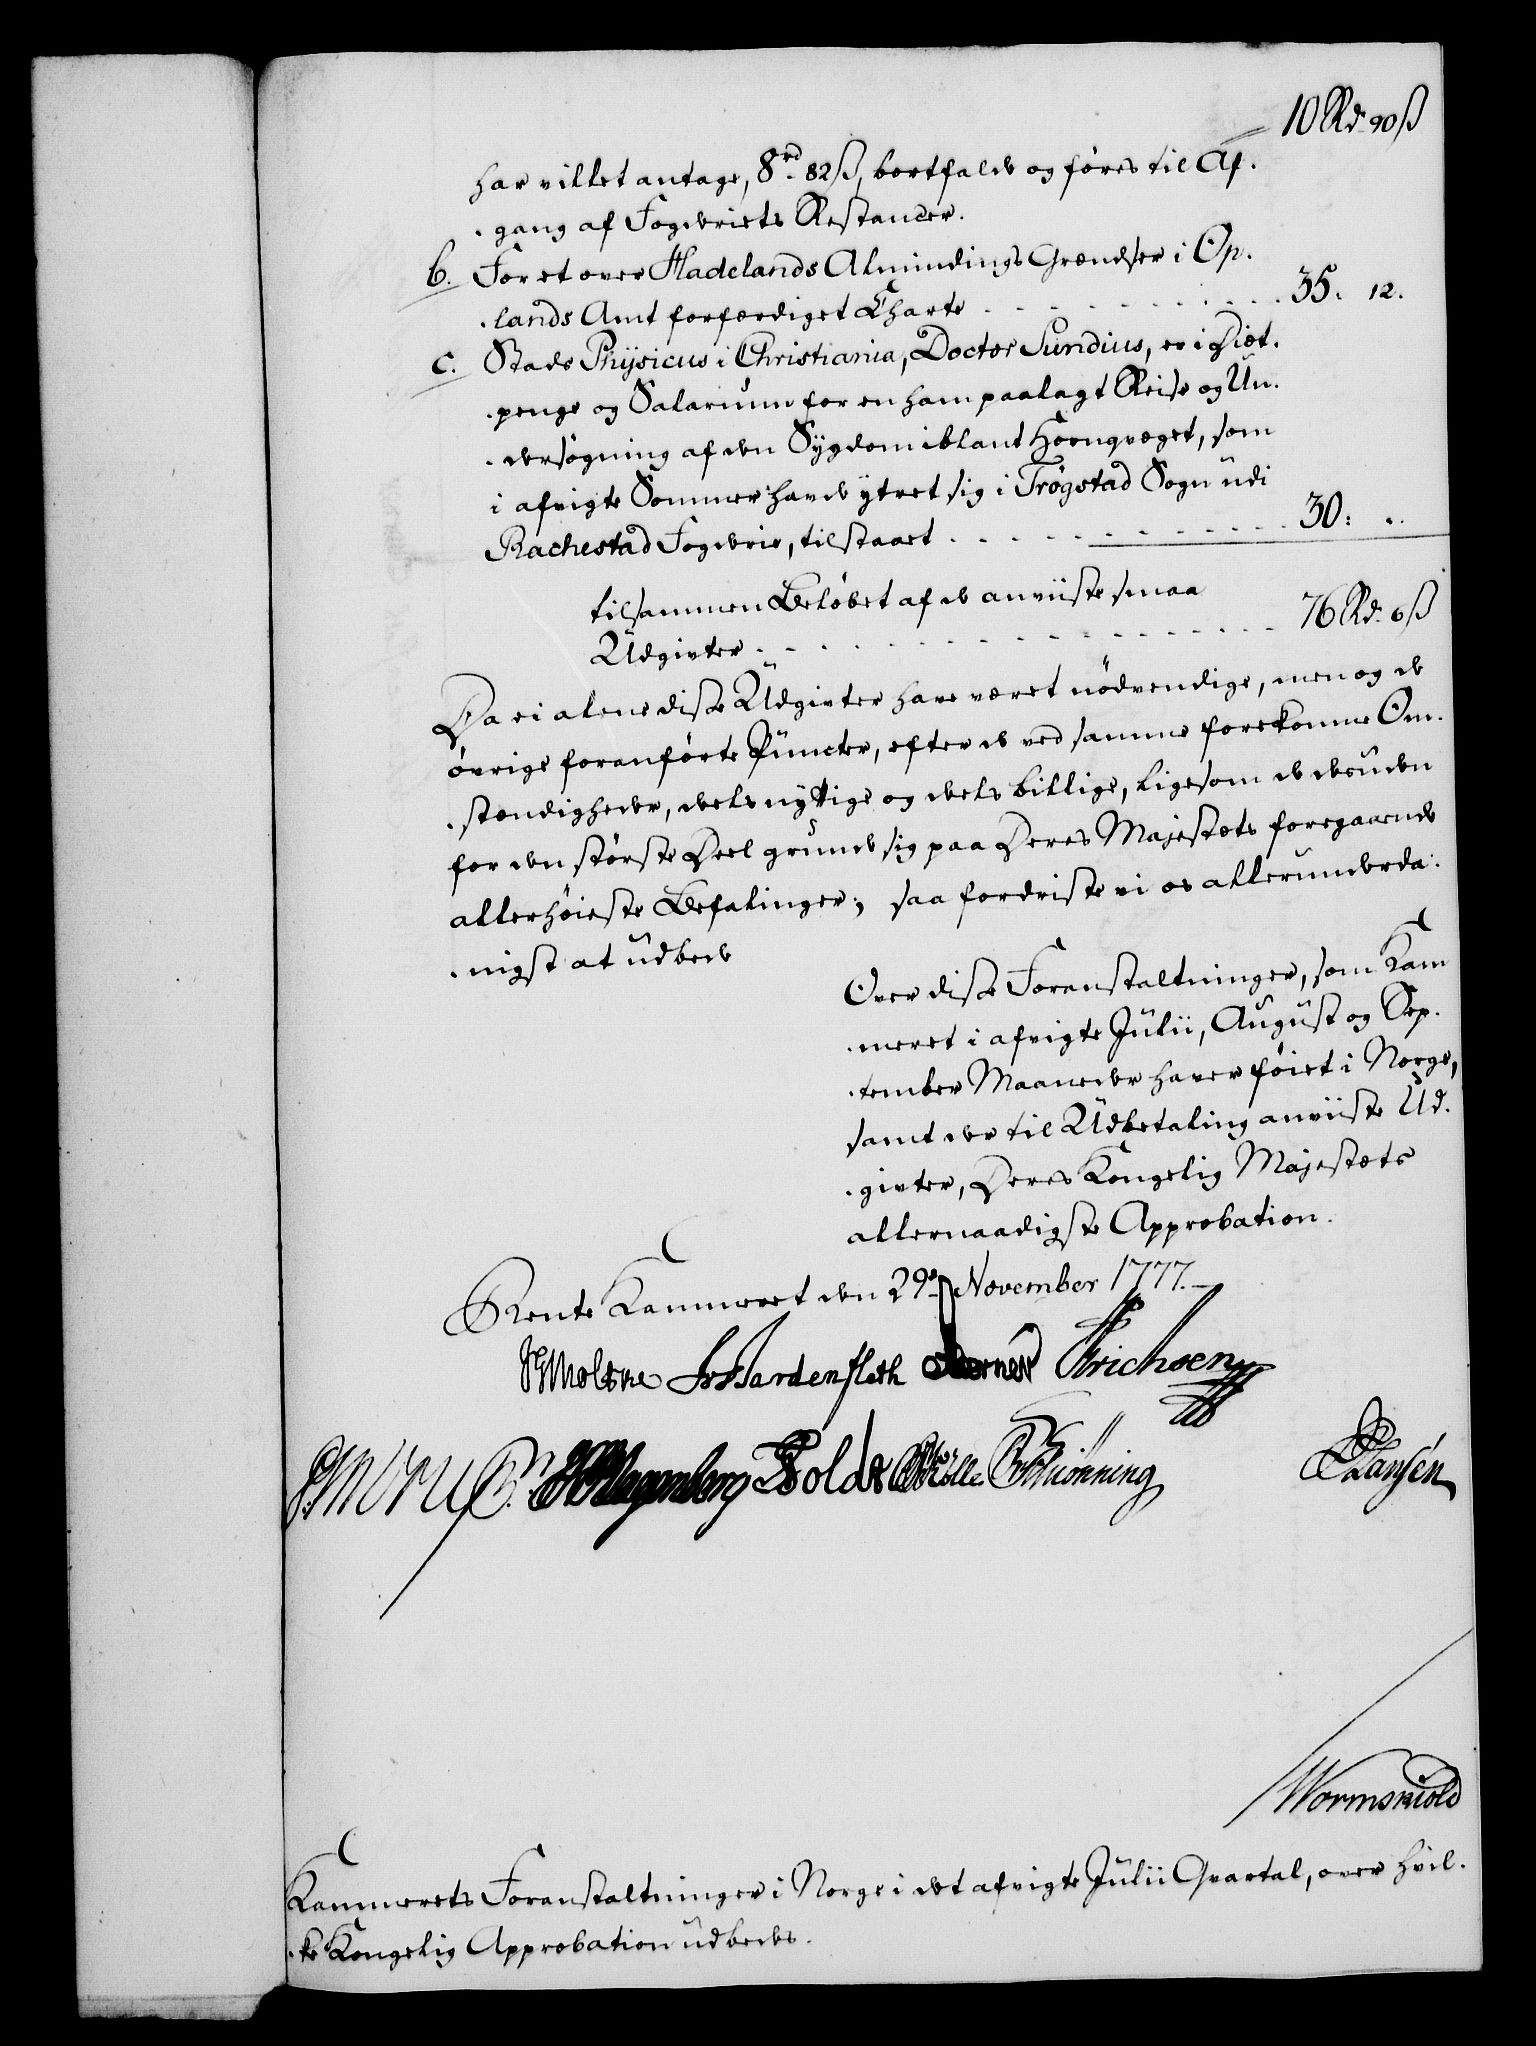 10 Rd. 90 ß
har villet antage, 8rd. 82 ß, bortfalde og føres til Af-
-gang af Fogderiets Restancer.
b. For et over Hadelands Almindings Grændser i Op-
-lands Amt forfærdiget Charte . . . . . . . . . 35. 12.
c. Stads Physicus i Christiania, Doctor Sundius, er i Diæt-
-penge og Salarium for en ham paalagt Reise og Un-
-dersøgning af den Sygdom iblant Hornqvæget, som
i afvigte Sommer havde ytret sig i Trøgstad Sogn udi
Rachestad Fogderie, tilstaaet . . . . . . . . . . 30: ..
tilsammen Beløbet af de anviiste smaa
Udgivter . . . . . . . . . . . . . . 76 Rd. 6 ß
Da ei alene disse Udgivter have været nødvendige, men og de
øvrige foranførte Puncter, efter de ved samme forekomne Om-
-stændigheder, deels nyttige og deels billige, ligesom de desuden
for den største Deel grunde sig paa Deres Majestæts foregaaende
allerhøieste Befalinger; saa fordriste vi os allerunderda-
-nigst at udbede
Over disse Foranstaltninger, som Kam
-meret i afvigte Julii, August og Sep-
-tember Maaneder haver føiet i Norge,
samt de til Udbetaling anviiste Ud-
-givter, Deres Kongelig Majestæts
allernaadigste Approbation.
Rente Kammeret den 29de November 1777.
HG Moltke Hardenfleth Berner Erichsen
Holde Schiønning
Hansen
Wormskiold
Kammerets Foranstaltninger i Norge i det afvigte Julii Qvartal, over hvil-
-ke Kongelig Approbation udbedes.